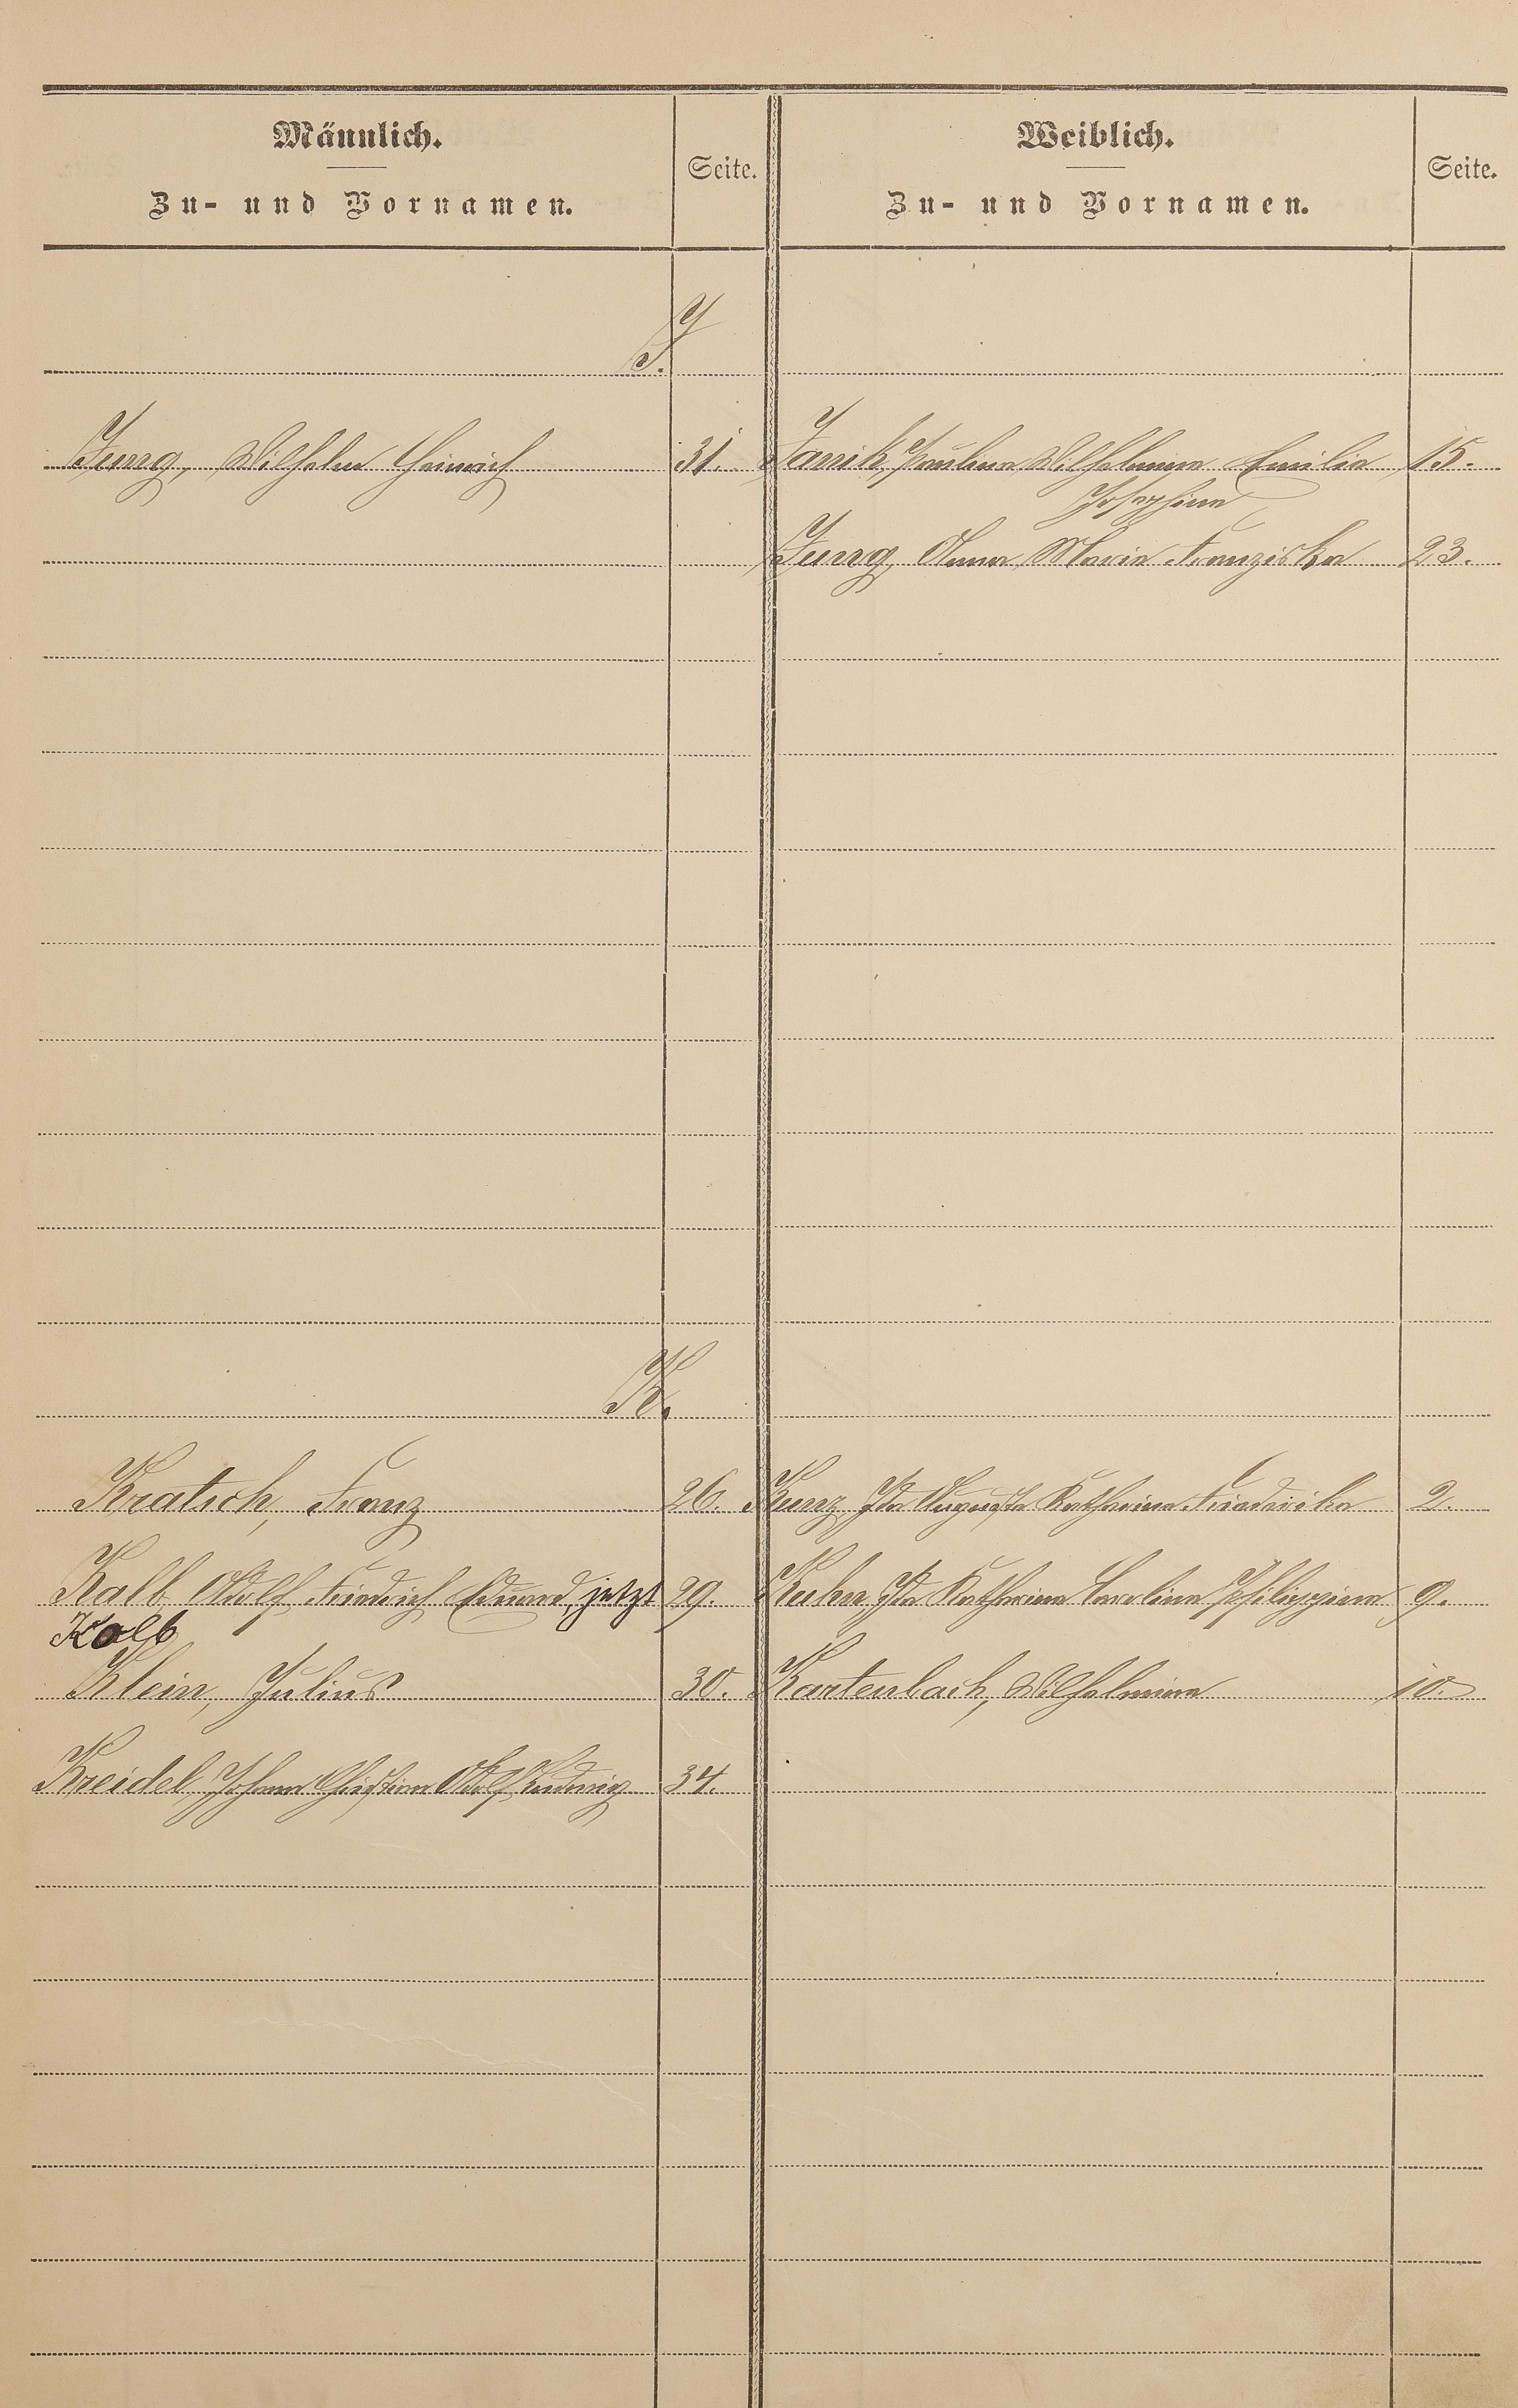 Männlich.
Zu- und Vornamen.
Seite.
Weiblich.
Zu- und Vornamen.
Seite.
J.
Jung, Wilhelm Heinrich 31. Janik, Pauline Wilhelmine Emilie 15.
Josephine
Jung, Anna Maria Franziska 23.
K.
Kratsch, Franz 26. Kunz, Ida Auguste Katharina Friederika 2.
Kalb Adolf Friedrich Eduard, jetzt 29. Kuhn, Ida Katharina Carolina Philippina 9.
Kolb
Klein, Julius 30. Kartenbach, Wilhelmine 10.
Kreidel, Johann Christian Adolf Ludwig 34.